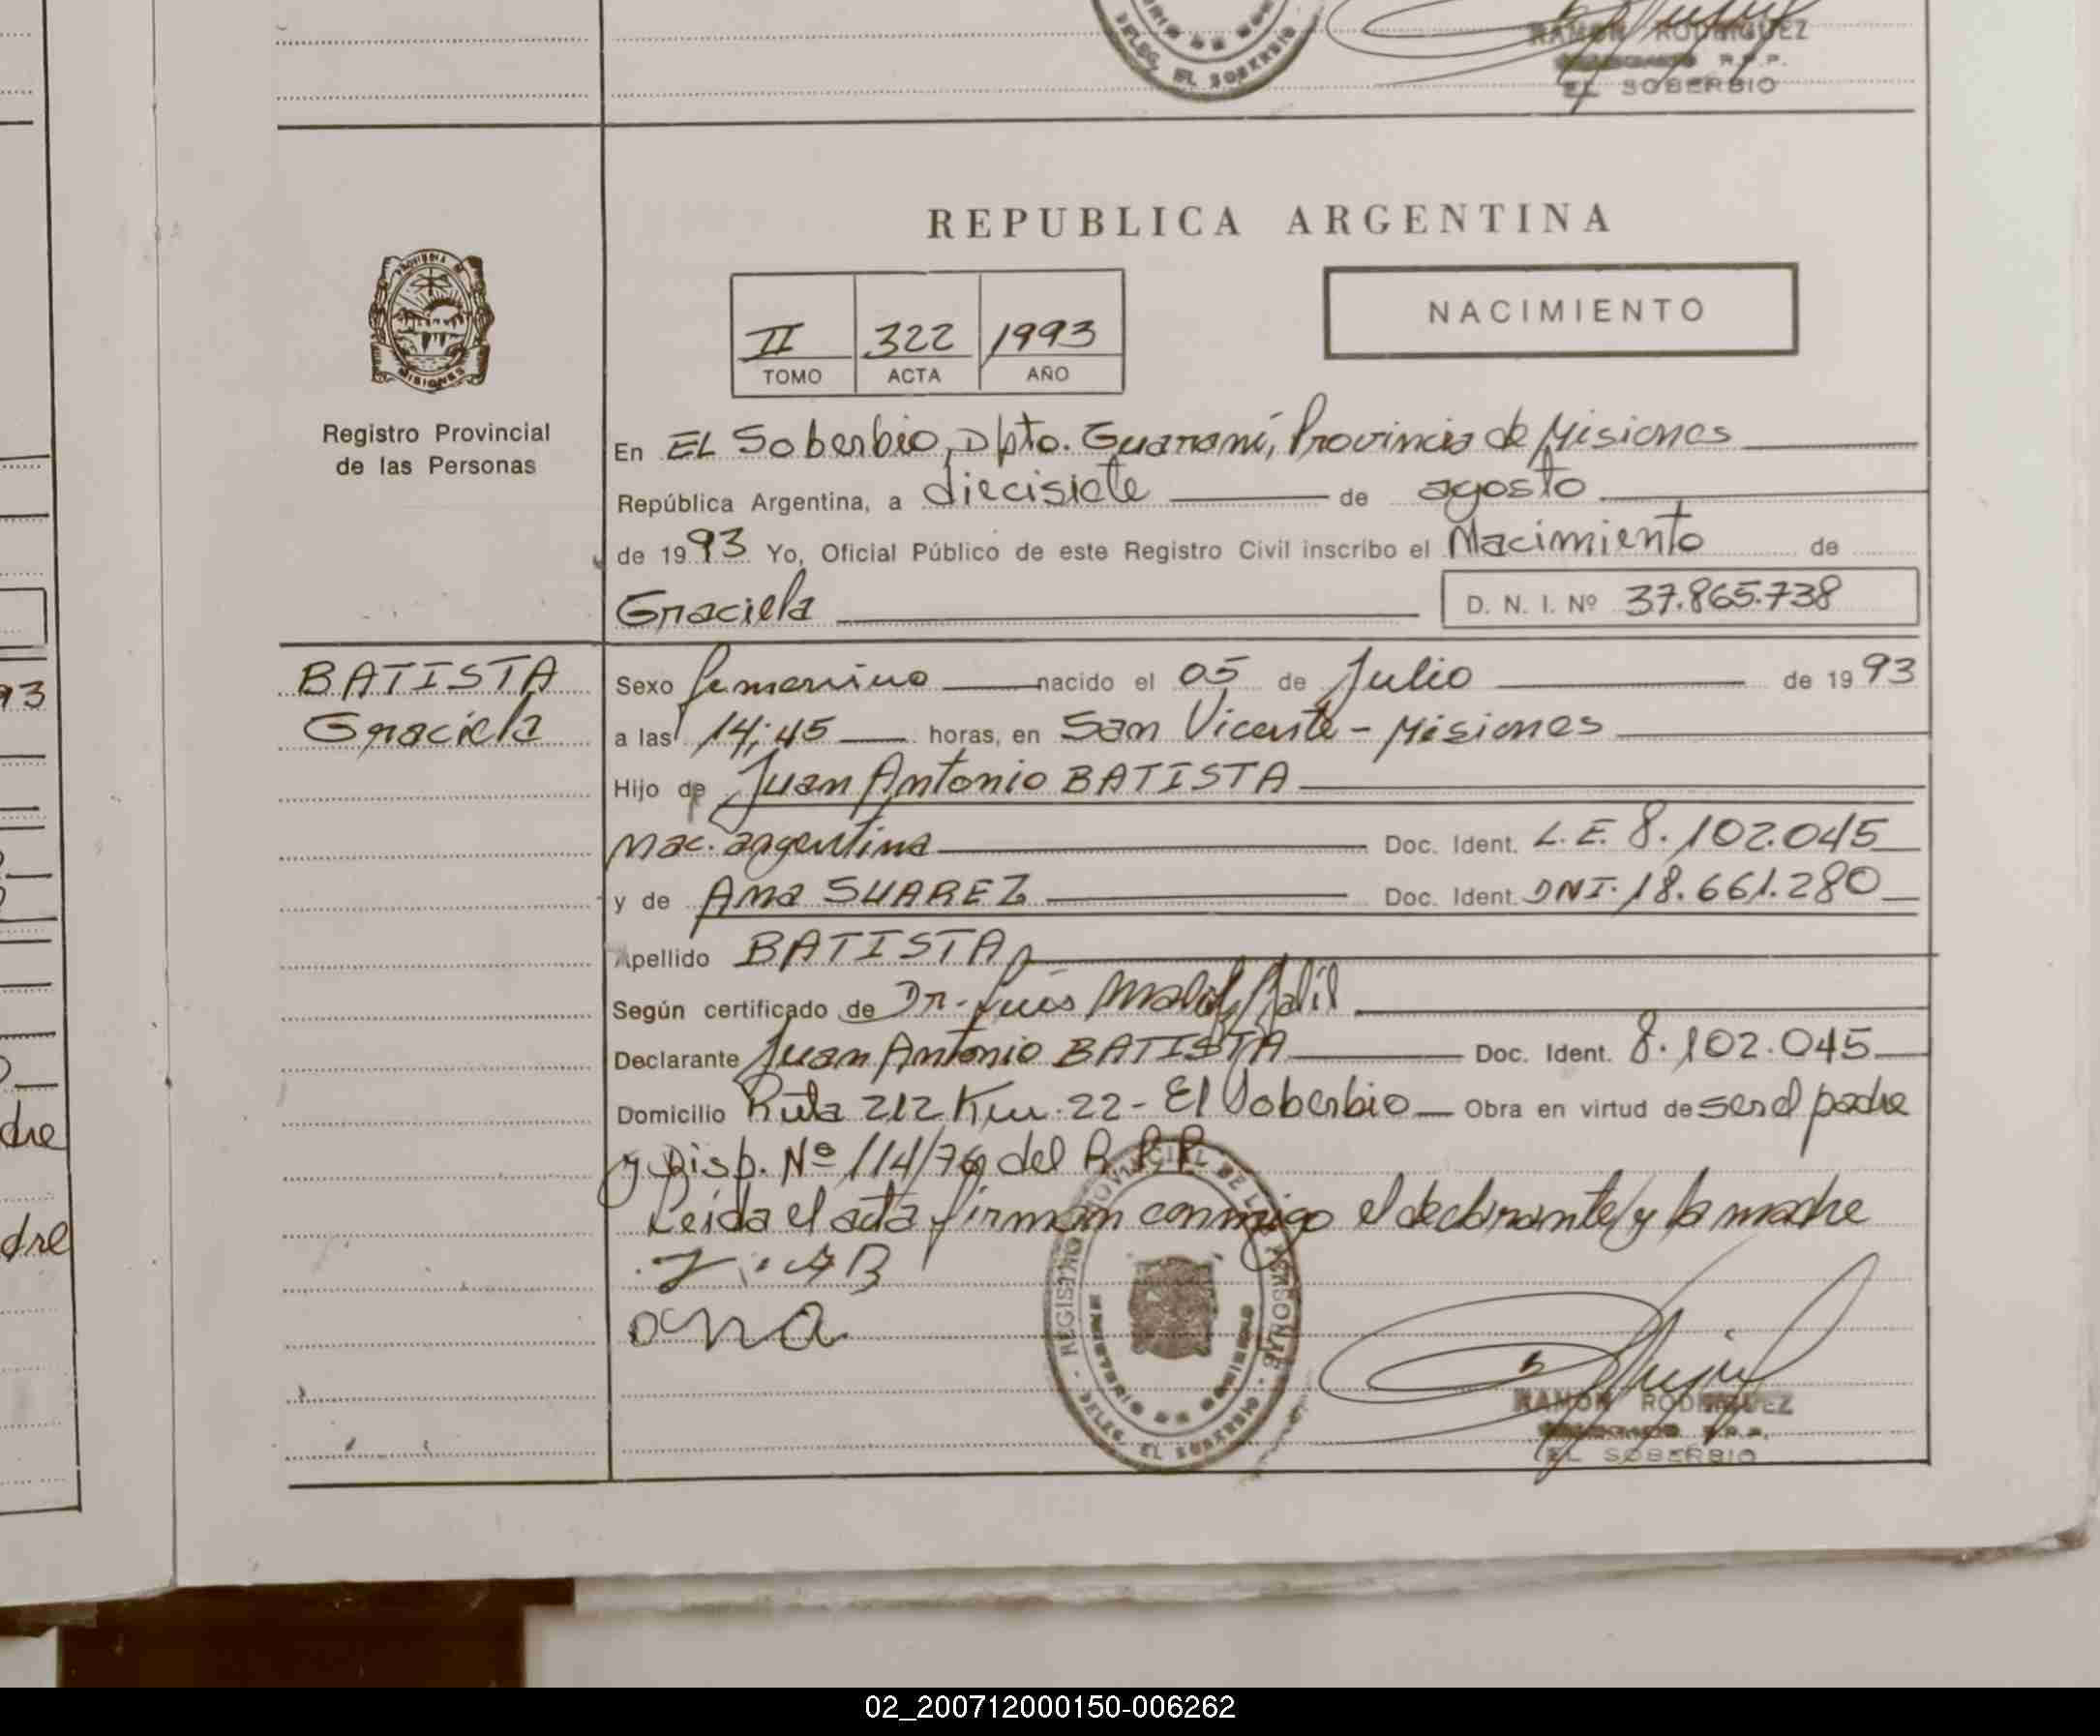 RAMON RODRIGUEZ
R.P.P.
DELEG. EL SOBERBIO
EL SOBERBIO
REPUBLICA ARGENTINA
NACIMIENTO
II 322 1993
TOMO ACTA AÑO
PROVINCIA DE MISIONES
Registro Provincial
de las Personas
En EL Soberbio, Dpto. Guaraní, Provincia de Misiones
República Argentina, a diecisiete de agosto
de 1993 Yo, Oficial Público de este Registro Civil inscribo el Nacimiento de
Graciela D. N. I. Nº 37.865.738
BATISTA
Graciela
Sexo femenino nacido el 05 de Julio de 1993
a las 14:45 horas, en San Vicente - Misiones
Hijo de Juan Antonio BATISTA
nac. argentina Doc. Ident. L.E. 8.102.045
y de Ana SUAREZ Doc. Ident. DNI. 18.661.280
Apellido BATISTA
Según certificado de Dr. Luis
Declarante Juan Antonio BATISTA Doc. Ident. 8.102.045
Domicilio Ruta 212 Km. 22 - El Soberbio Obra en virtud de ser el padre
y Disp. Nº 114/76 del R.P.P.
Leida el acta firman conmigo el declarante y la madre
J. A B
ana
REGISTRO PROVINCIAL DE LAS PERSONAS
MINISTERIO DE GOBIERNO
DELEG. EL SOBERBIO
RAMON RODRIGUEZ
R.P.P.
EL SOBERBIO
93
dre
dre
02_200712000150-006262